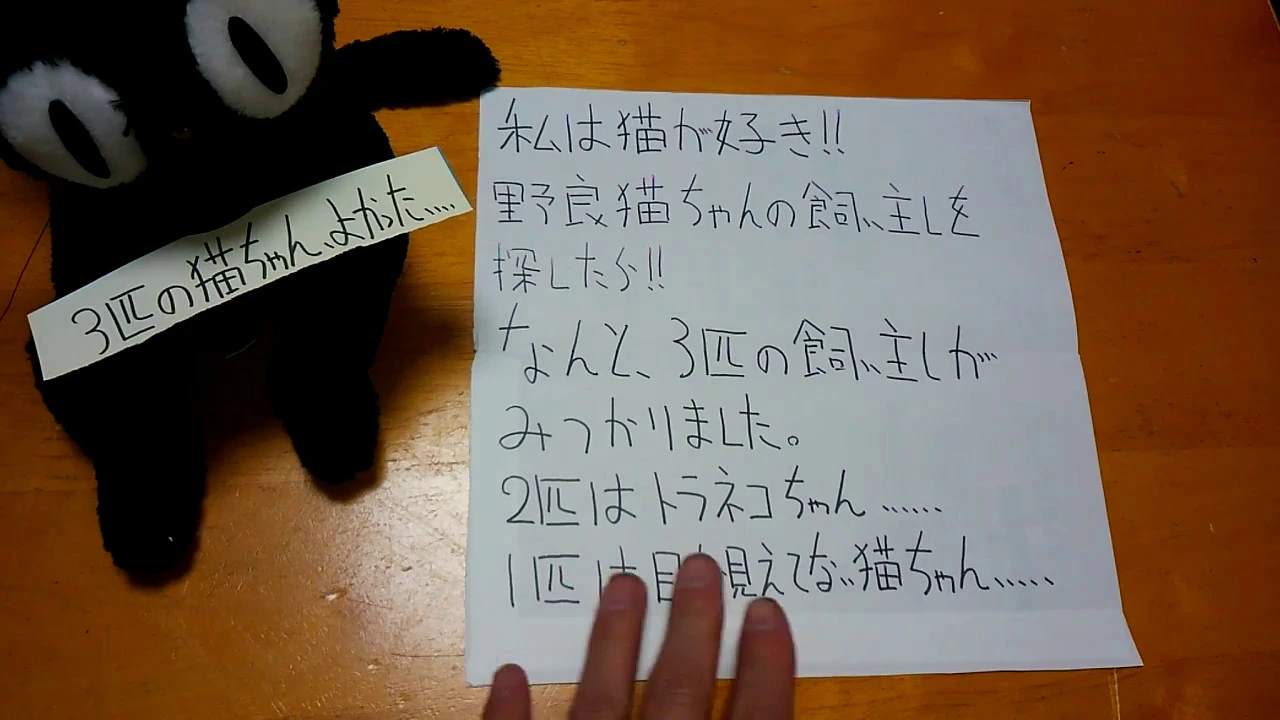 3匹の猫ちゃん、よかった....
私は猫が好き!!
野良猫ちゃんの飼い主しを
探したら!!
なんと、3匹の飼い主しが
みつかりました。
2匹はトラネコちゃん......
1匹は目 見えてない猫ちゃん.....